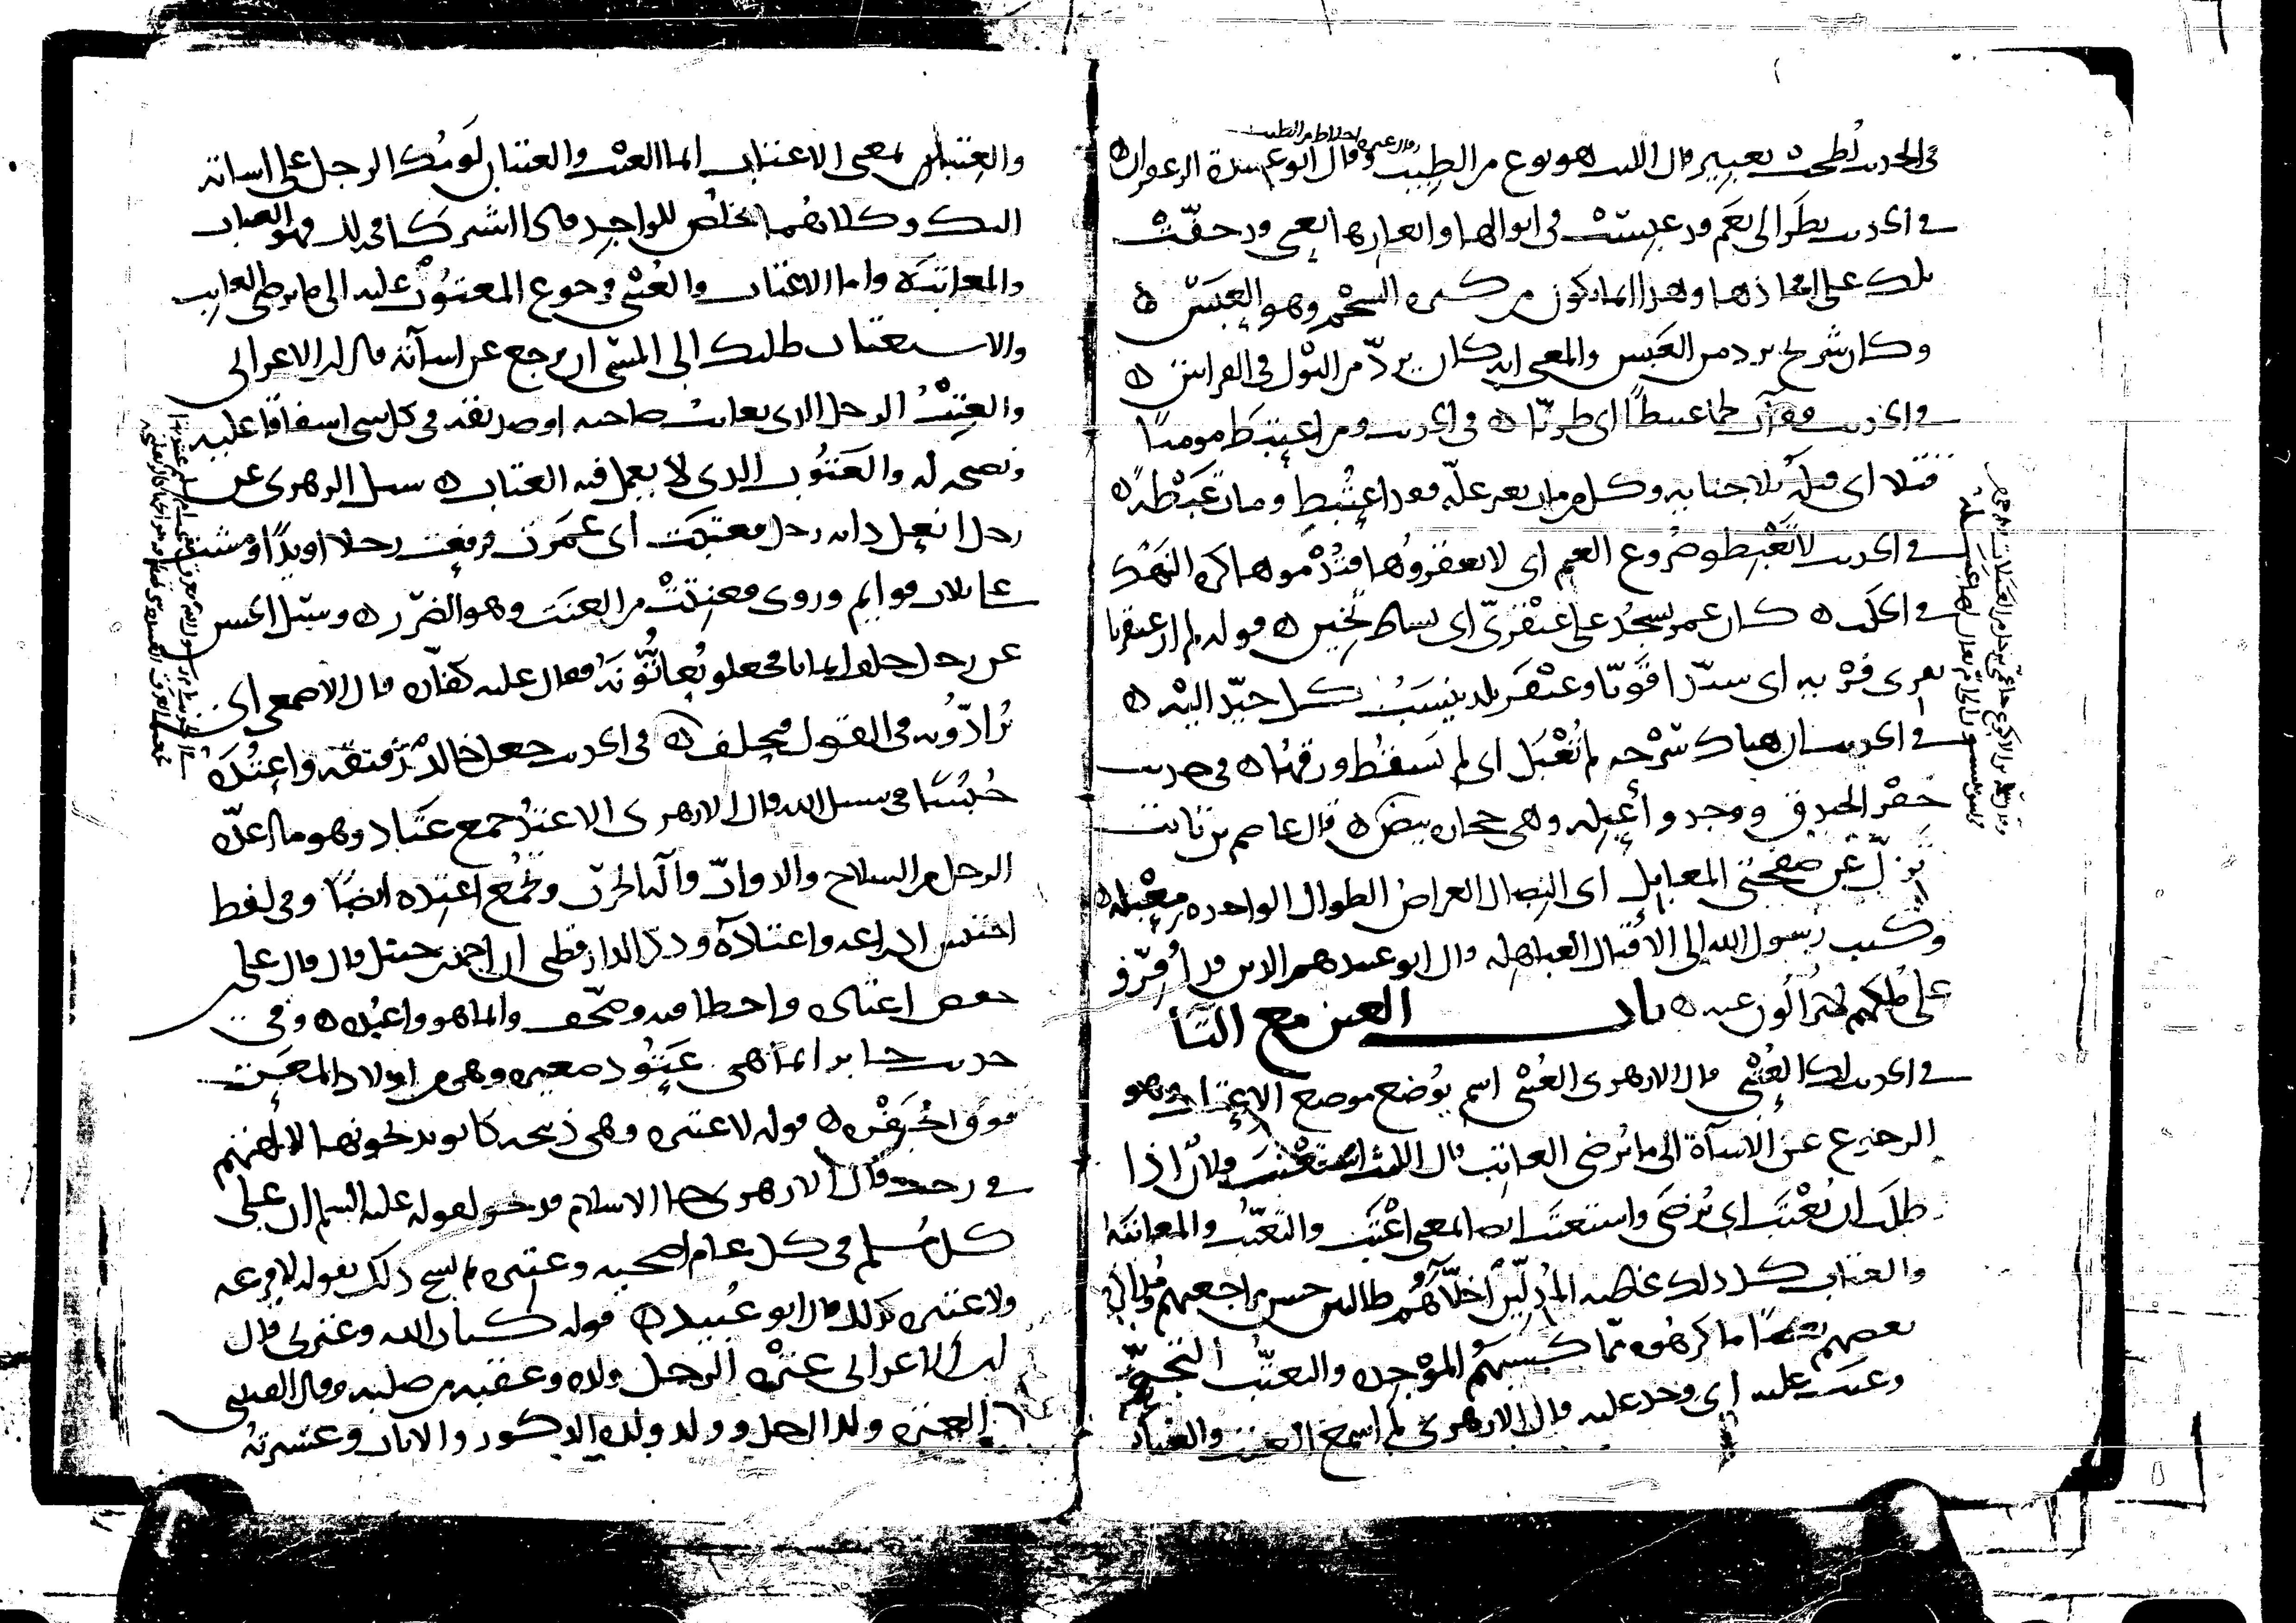 في الحديث لُطخت بعبير قال الليث هو نوع من الطيب وقال ابو عبيدة الزعفران ه
في الحديث نظر الى نَعَم قد عبِسَتْ في ابوالها وابعارها يعني قد جفّت
تلك على افخاذها وهذا انما يكون من كثرة الشحم وهو العَبَسُ ه
وكان شريح يرد من العَبَس والمعنى انه كان يردّ من البول في الفراش ه
في الحديث فقآت لحما عبيطًا اى طريّا ه في الحديث ومن اعتبط مومنًا
قتلا اى قتله بلا جناية وكل من مات بغير علّة فقد اعتُبط ومات عَبْطة ه
في الحديث لا تَعْبِطوا ضروع الغنم اى لا تعقروها فتُدْموها كره النَهْك
في الحلب ه كان عمر يسجُد على عَبْقَرىّ اى بساط ثخين ه قوله فلم ار عبقريا
يفرى فَرْيه اى سيّدا قويّا وعبْقَر بلد يُنسَبُ كل جيّد اليه ه
في الحديث ان هناك سَرْحه لم تُعْبَل اى لم يَسقُط ورقها ه في حديث
حَفْر الخندق ووجدوا أعبِله وهي حجاره بيض ه قال عاصم بن ثابت
تزِلّ عن صفحتى المعابِل اى النصال العراض الطوال الواحده مِعْبله ه
وكتب رسول الله الى الاقيال العباهله قال ابو عبيد هم الذين قد أقرّوا
على ملكهم لا يزالون عنه ه باب العين مع التا
في الحديث لك العُتْبى قال الازهرى العُتْبى اسم يُوضع موضع الاعتاب وهو
الرجوع عن الاسآة الى ما يُرضى العاتب قال الليث استعتب فلان اذا
طلب ان يُعْتَب اى يُرضَى واستعتب ايضا بمعنى اعْتَبَ والتعتّبُ والمعاتبَه
والعتاب كل ذلك مخاطبه المُدِلّين اخلّآهم طالبين حسن مراجعتهم ومذاكره
بعضهم بعضًا ما كرهوه ممّا كسبهم المَوْجِده والتعتّب التجنّى
وعتب عليه اى وجد عليه قال الازهرى لم اسمع العتب والعتبان
والعِتاب بمعنى الاعتاب انما العتب والعتبان لَومُك الرجل على اساته
اليك وكلاهما يخلُص للواحد فاذا اشتركا في ذلك فهو العتاب
والمعاتبَه واما الاعتاب والعُتْبى فرجوع المعتوب عليه الى ما يرضى العاتب
والاستعتاب طلبك الى المسى ان يرجع عن اسآته قال ابن الاعرابى
والعِتْبُ الرجل الذى يعاتب صاحبه او صديقه في كل شى اشفاقا عليه
ونصيحه له والعَتُوب الذى لا يعمل فيه العتاب ه سيل الزهرى عن
رجل انعل دابه رجل فعتبت اى غمزت فرفعت رجلا او يدًا ومشت
على ثلاث قوايم وروى فعنِتَتْ من العنَت وهو الضرر ه وسئل الحسن
عن رجل حلف ايمانا فجعلوا يُعاتُّونَه فقال عليه كفّارة قال الاصمعى اى
يُرادّونه في القول فيحلف ه في الحديث جعل خالد رقيقه واعتُدَه
حُبُسًا في سبيل الله قال الازهرى الاعتُد جمع عَتاد وهو ما اعدّه
الرجل من السلاح والدوابّ وآلة الحرب وتُجمع اعتِده ايضًا وفى لفظ
احتبس ادراعه واعتاده وذكر الدارقطنى ان احمد بن حنبل قال قال على
بن حفص اعتاده واخطا فيه وصحّف وانما هو واعتُده ه وفى
حديث جابر انما هى عَتُود معِزه وهى من اولاد المعز
فوق الجَفْره ه قوله لا عتيره وهى ذبيحه كانوا يذبحونها لالهتهم
في رجب قال الازهرى هذا الاسلام قد نحو لقوله عليه السلم ان على
كل مسلم في كل عام اضحيه وعتيره ثم نسخ ذلك بقوله لا فرعه
ولا عتيره كذلك قال ابو عُبيد ه قوله كتاب الله وعترتى قال
ابن الاعرابى عِتْرة الرجل ولده وعقبه من صلبه وقال القتيبى
العتره ولد الرجل وولد ولده الذكور والاناث وعشيرته